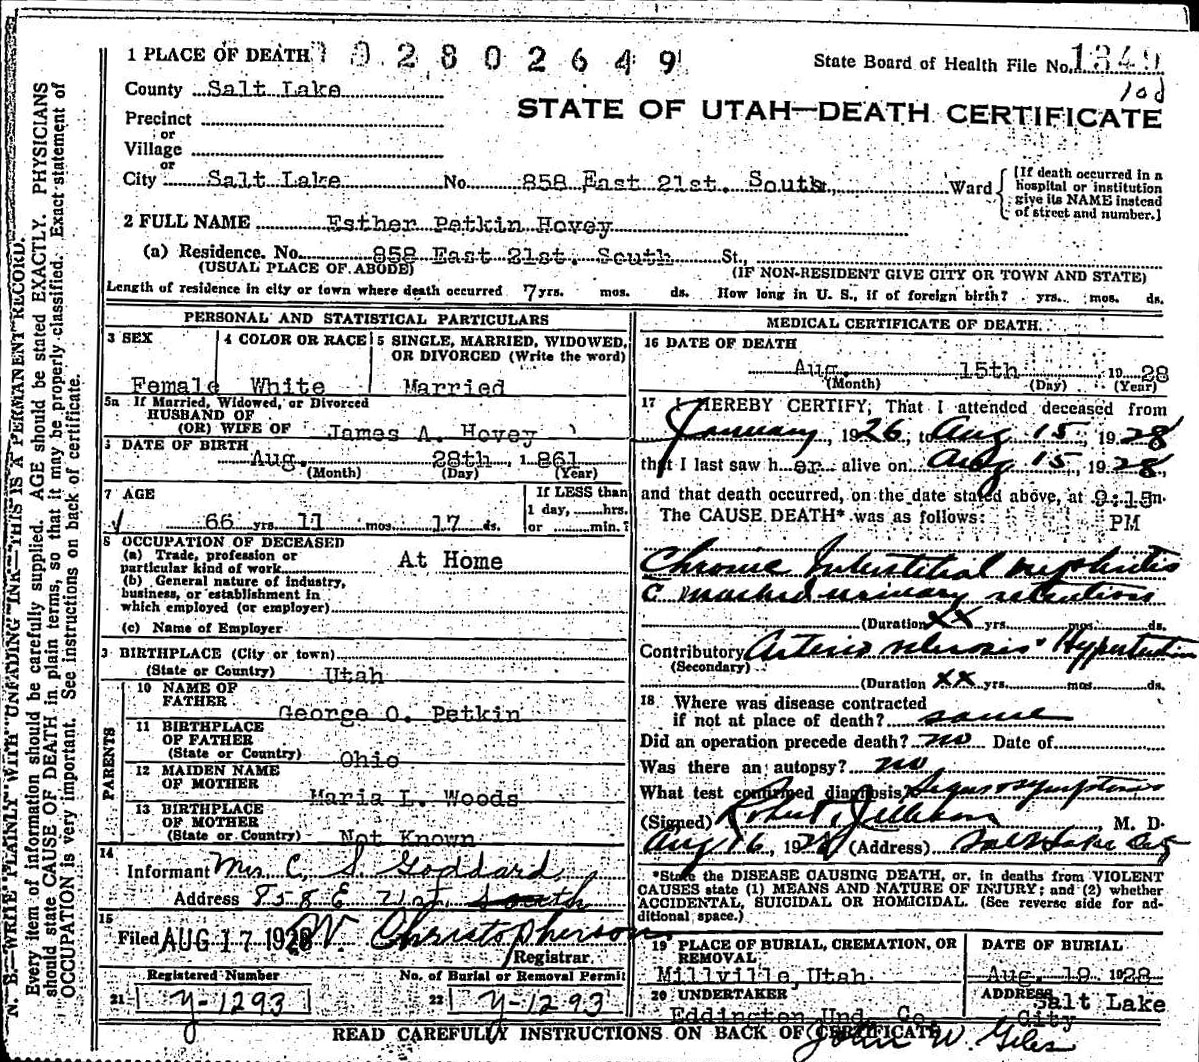 1 PLACE OF DEATH 1 0 2 8 0 2 6 4 9
State Board of Health File No. 1349
County Salt Lake
108
STATE OF UTAH—DEATH CERTIFICATE
Precinct
or
Village
or
City Salt Lake No. 858 East 21st. South, Ward
[If death occurred in a hospital or institution give its NAME instead of street and number.]
2 FULL NAME Esther Petkin Hovey
(a) Residence. No. 858 East 21st. South St.,
(USUAL PLACE OF ABODE) (IF NON-RESIDENT GIVE CITY OR TOWN AND STATE)
Length of residence in city or town where death occurred 7 yrs. mos. ds. How long in U. S., if of foreign birth? yrs. mos. ds.
PERSONAL AND STATISTICAL PARTICULARS
3 SEX 4 COLOR OR RACE 5 SINGLE, MARRIED, WIDOWED,
OR DIVORCED (Write the word)
Female White Married
5a If Married, Widowed, or Divorced
HUSBAND OF
(OR) WIFE OF James A. Hovey
DATE OF BIRTH
Aug. 28th, 1861
(Month) (Day) (Year)
7 AGE If LESS than
1 day, hrs.
66 yrs. 11 mos. 17 ds. or min.?
8 OCCUPATION OF DECEASED
(a) Trade, profession or
particular kind of work At Home
(b) General nature of industry,
business, or establishment in
which employed (or employer)
(c) Name of Employer
BIRTHPLACE (City or town)
(State or Country) Utah
PARENTS
10 NAME OF
FATHER George O. Petkin
11 BIRTHPLACE
OF FATHER
(State or Country) Ohio
12 MAIDEN NAME
OF MOTHER Maria L. Woods
13 BIRTHPLACE
OF MOTHER
(State or Country) Not Known
14
Informant Mrs C. S. Goddard
Address 858 E 21st. South
15
Filed AUG 17 1928 W. Christopherson
Registrar.
Registered Number No. of Burial or Removal Permit
21 y-1293 22 y-1293
MEDICAL CERTIFICATE OF DEATH.
16 DATE OF DEATH
Aug. 15th 1928
(Month) (Day) (Year)
17 I HEREBY CERTIFY, That I attended deceased from
January, 1926, to Aug 15, 1928
that I last saw her alive on Aug 15, 1928,
and that death occurred, on the date stated above, at 9:15 m.
The CAUSE DEATH* was as follows: PM
Chronic Interstitial nephritis
c marked urinary retention
(Duration XX yrs. mos. ds.
Contributory Arterio sclerosis & Hypertention
(Secondary)
(Duration XX yrs. mos. ds.
18 Where was disease contracted
if not at place of death? same
Did an operation precede death? no Date of
Was there an autopsy? no
What test confirmed diagnosis? Signs & symptoms
(Signed) Robert M. D.
Aug 16, 1928 (Address) Salt Lake City
*State the DISEASE CAUSING DEATH, or, in deaths from VIOLENT
CAUSES state (1) MEANS AND NATURE OF INJURY; and (2) whether
ACCIDENTAL, SUICIDAL OR HOMICIDAL. (See reverse side for ad-
ditional space.)
19 PLACE OF BURIAL, CREMATION, OR REMOVAL DATE OF BURIAL
Millville, Utah. Aug. 19 1928
20 UNDERTAKER ADDRESS
Eddington Und. Co. Salt Lake City
READ CAREFULLY INSTRUCTIONS ON BACK OF CERTIFICATE
John W. Giles
N. B.—WRITE PLAINLY WITH UNFADING INK—THIS IS A PERMANENT RECORD.
Every item of information should be carefully supplied. AGE should be stated EXACTLY. PHYSICIANS
should state CAUSE OF DEATH in plain terms, so that it may be properly classified. Exact statement of
OCCUPATION is very important. See instructions on back of certificate.